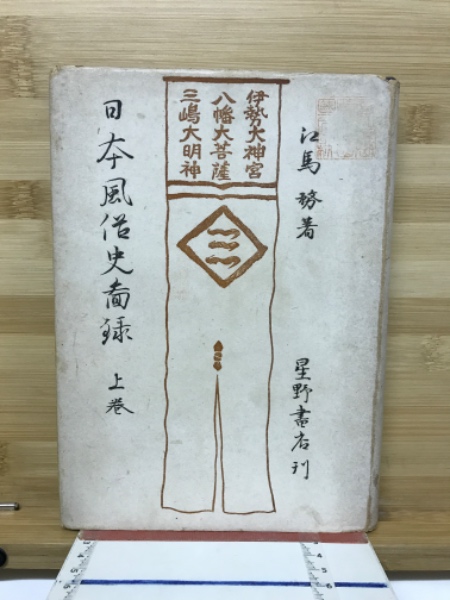 江馬務著
星野書店刊
伊勢大神宮
八幡大菩薩
三嶋大明神
三
日本風俗史圖録 上巻